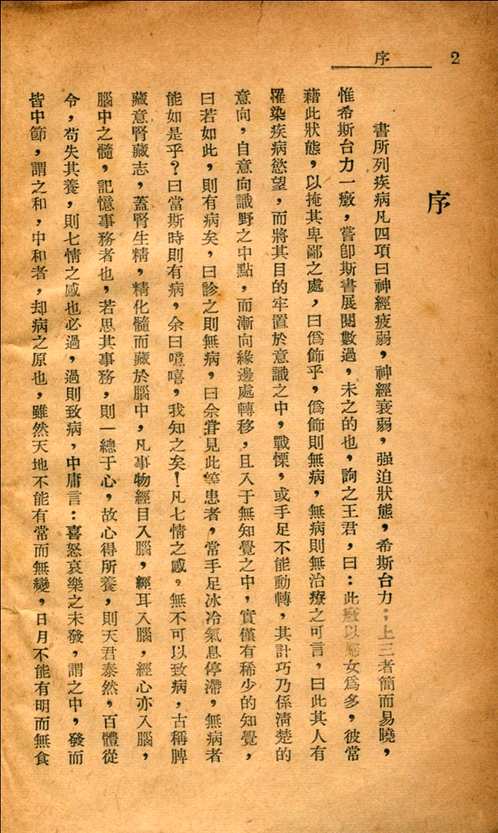 2
序
序
書所列疾病凡四項曰神經疲弱，神經衰弱，强迫狀態，希斯台力；上三者簡而易曉，
惟希斯台力一癥，嘗卽斯書展閱數過，未之的也，詢之王君，曰：此癥以女爲多，彼常
藉此狀態，以掩其卑鄙之處，曰僞飾乎，僞飾則無病，無病則無治療之可言，曰此其人有
羅染疾病慾望，而將其目的牢置於意識之中，戰慄，或手足不能動轉，其計巧乃係淸楚的
意向，自意向識野之中點，而漸向緣邊處轉移，且入于無知覺之中，實僅有稀少的知覺，
曰若如此，則有病矣，曰診之則無病，曰余嘗見此等患者，常手足冰冷氣息停滯，無病者
能如是乎？曰當斯時則有病，余曰噫嘻，我知之矣！凡七情之感，無不可以致病，古稱脾
藏意腎藏志，蓋腎生精，精化髓而藏於腦中，凡事物經目入腦，經耳入腦，經心亦入腦，
腦中之髓，記憶事務者也，若思其事務，則一總于心，故心得所養，則天君泰然，百體從
令，苟失其養，則七情之感也必過，過則致病，中庸言：喜怒哀樂之未發，謂之中，發而
皆中節，謂之和，中和者，却病之原也，雖然天地不能有常而無變，日月不能有明而無食